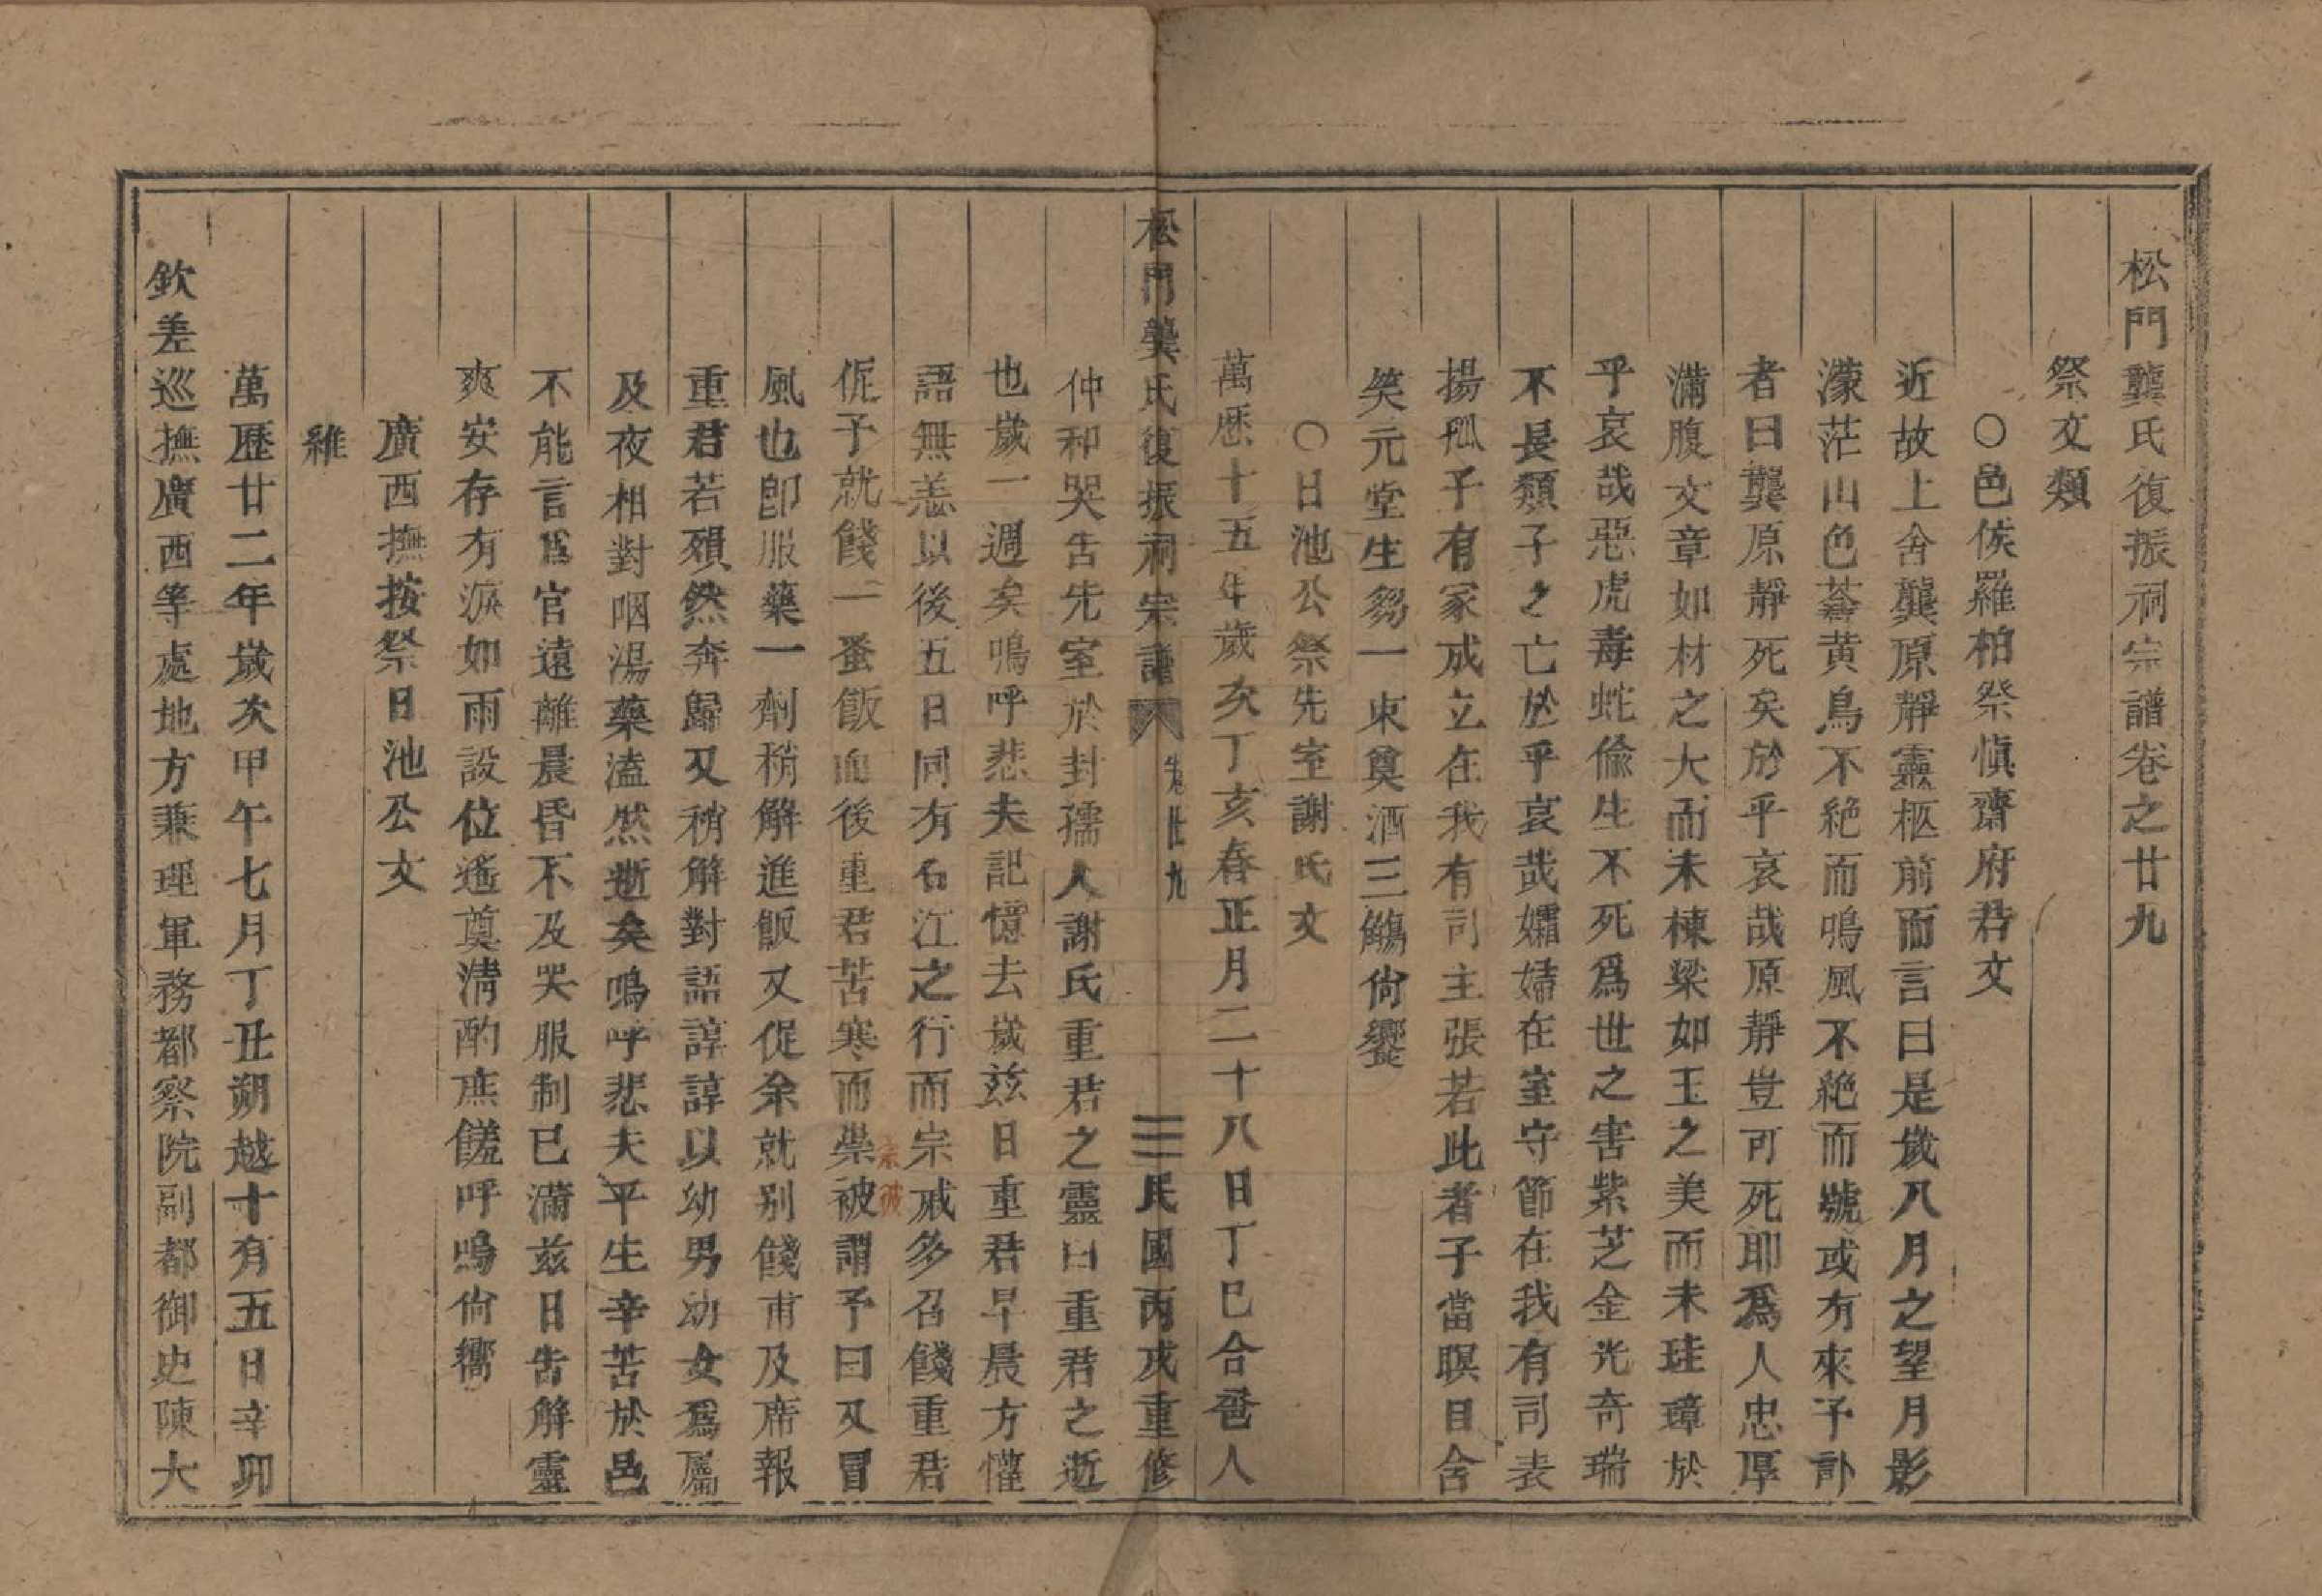 松門龔氏復振祠宗譜卷之廿九
祭文類
○邑侯羅柏祭慎齋府君文
近故上舍龔原靜靈柩前而言曰是歲八月之望月影
濛茫山色蒼黄鳥不絶而鳴風不絶而號或有來予訃
者曰龔原靜死矣於乎哀哉原靜豈可死耶爲人忠厚
滿腹文章如材之大而未棟梁如玉之美而未珪璋於
乎哀哉惡虎毒蛇偷生不死爲世之害紫芝金光奇瑞
不長類子之亡於乎哀哉孀婦在室守節在我有司表
揚孤子有家成立在我有司主張若此者子當瞑目含
笑元堂生芻一束奠酒三觴尙饗
○日池公祭先室謝氏文
萬歷十五年歲次丁亥春正月二十八日丁巳合卺人
松門龔氏復振祠宗譜 卷廿九 民國丙戌重修
仲和哭告先室於封孺人謝氏重君之靈曰重君之逝
也歲一週矣嗚呼悲夫記憶去歲兹日重君早晨方懽
語無恙以後五日同有石江之行而宗戚多召餞重君
促予就餞一蚤飯而後重君苦寒而祟被謂予曰又冒
風也卽服藥一劑稍解進飯又促余就别餞甫及席報
重君若殞然奔歸又稍解對語諄諄以幼男幼女爲屬
及夜相對咽湯藥溘然逝矣嗚呼悲夫平生辛苦於邑
不能言爲官遠離晨昏不及哭服制已滿兹日告解靈
爽安存有淚如雨設位遙奠淸酌庶饈呼嗚尙嚮
廣西撫按祭日池公文
維
萬歷廿二年歲次甲午七月丁丑朔越十有五日辛卯
欽差巡撫廣西等處地方兼理軍務都察院副都御史陳大